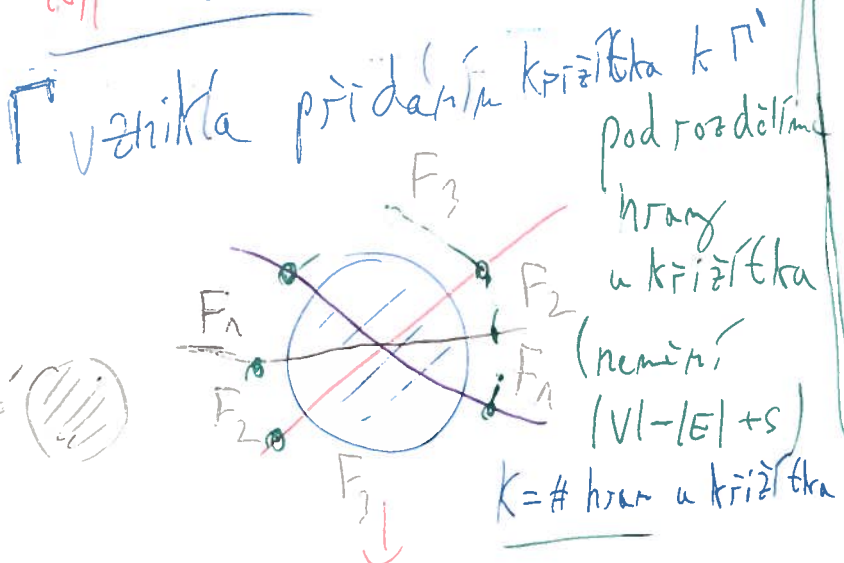 Γ vznikla přidáním křížítka k Γ'
pod rozdělíme
hrany
u křížítka
(nemění
|V|-|E|+s)
K = # hran u křížítka
F₃
F₁
F₂
F₂
F₁
F₃